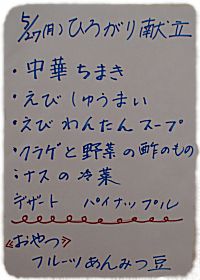 5/27(月)ひろがり献立
・中華ちまき
・えびしゅうまい
・えびわんたんスープ
・クラゲと野菜の酢のもの
ミナスの冷菜
デザート パイナップル
≪おやつ≫
フルーツあんみつ豆